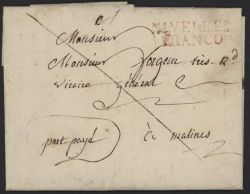 ANVERS
FRANCO
Monsieur
Monsieur Forgeur très
vicaire général
port payé à malines